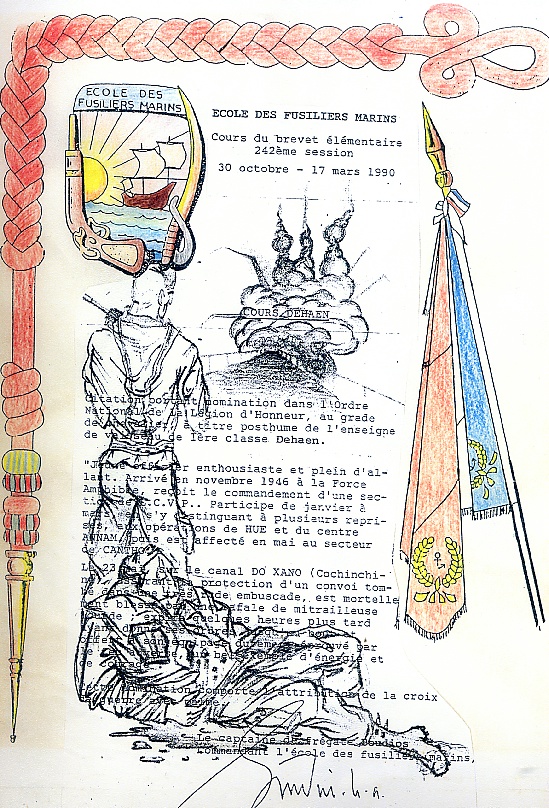 ECOLE DES
FUSILIERS MARINS
ECOLE DES FUSILIERS MARINS
Cours du brevet élémentaire
242ème session
30 octobre - 17 mars 1990
COURS DEHAEN
Citation portant nomination dans l'Ordre
National de la Légion d'Honneur, au grade
de à titre posthume de l'enseigne
de vaisseau de 1ère classe Dehaen.
"Jeune officier enthousiaste et plein d'al-
lant. Arrivé en novembre 1946 à la Force
Amphibie, reçoit le commandement d'une sec-
tion de L.C.V.P.. Participe de janvier à
mars en s'y distinguant à plusieurs repri-
ses, aux opérations de HUE et du centre
ANNAM, puis est affecté en mai au secteur
de CANTHO.
Le 23 sur le canal DO XANO (Cochinchi-
ne) assurant la protection d'un convoi tom-
bé dans une embuscade, est mortelle-
ment blessé par une rafale de mitrailleuse
quelques heures plus tard
son équipage durement éprouvé par
un bel exemple d'énergie et
de courage
nomination comporte l'attribution de la croix
de guerre avec palme.
Le capitaine de frégate Loudios
commandant l'école des fusiliers marins,